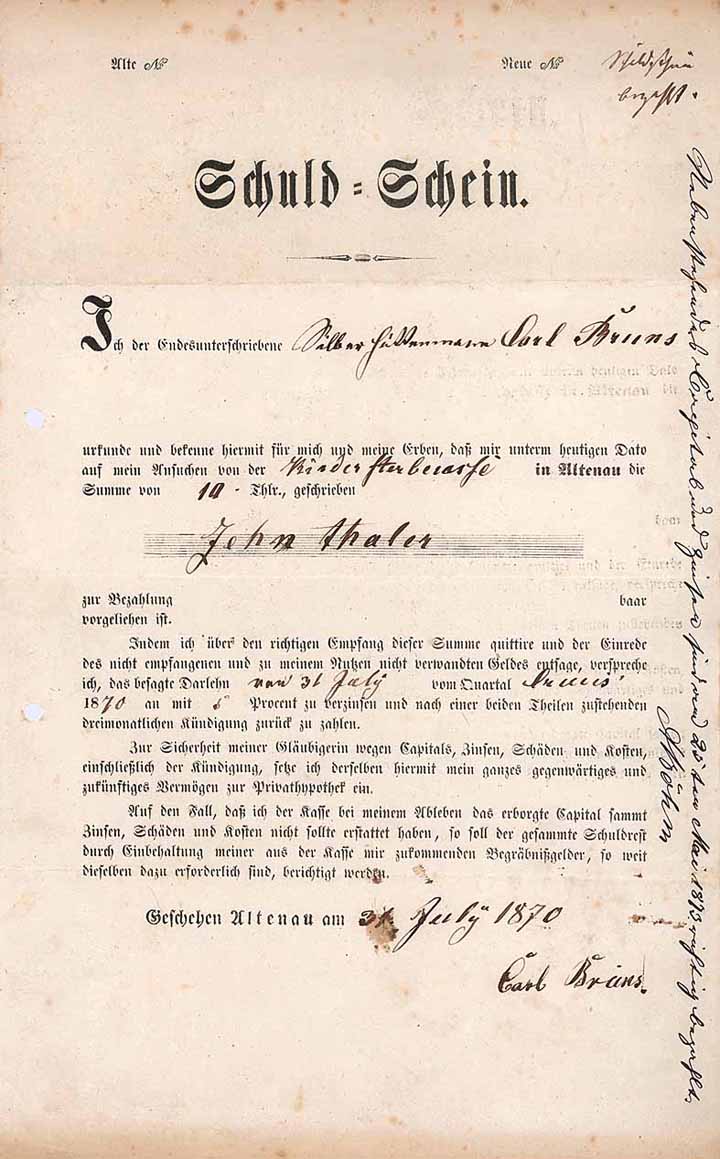 Alte № Neue №
Schuldschein
bezahlt.
Schuld=Schein.
Ich der Endesunterschriebene Silberhüttenmann Carl Bruns
urkunde und bekenne hiermit für mich und meine Erben, daß mir unterm heutigen Dato
auf mein Ansuchen von der Kindersterbecasse in Altenau die
Summe von 10 - Thlr., geschrieben
Zehn thaler
zur Bezahlung baar
vorgeliehen ist.
Indem ich über den richtigen Empfang dieser Summe quittire und der Einrede
des nicht empfangenen und zu meinem Nutzen nicht verwandten Geldes entsage, verspreche
ich, das besagte Darlehn von 31 July vom Quartal
1870 an mit 5 Procent zu verzinsen und nach einer beiden Theilen zustehenden
dreimonatlichen Kündigung zurück zu zahlen.
Zur Sicherheit meiner Gläubigerin wegen Capitals, Zinsen, Schäden und Kosten,
einschließlich der Kündigung, setze ich derselben hiermit mein ganzes gegenwärtiges und
zukünftiges Vermögen zur Privathypothek ein.
Auf den Fall, daß ich der Kasse bei meinem Ableben das erborgte Capital sammt
Zinsen, Schäden und Kosten nicht sollte erstattet haben, so soll der gesammte Schuldrest
durch Einbehaltung meiner aus der Kasse mir zukommenden Begräbnißgelder, so weit
dieselben dazu erforderlich sind, berichtigt werden.
Geschehen Altenau am 31. July 1870
Carl Bruns.
Nebenstehendes Capital und Zinsen sind den 25ten Mai 1873 richtig bezahlt.
Böhm